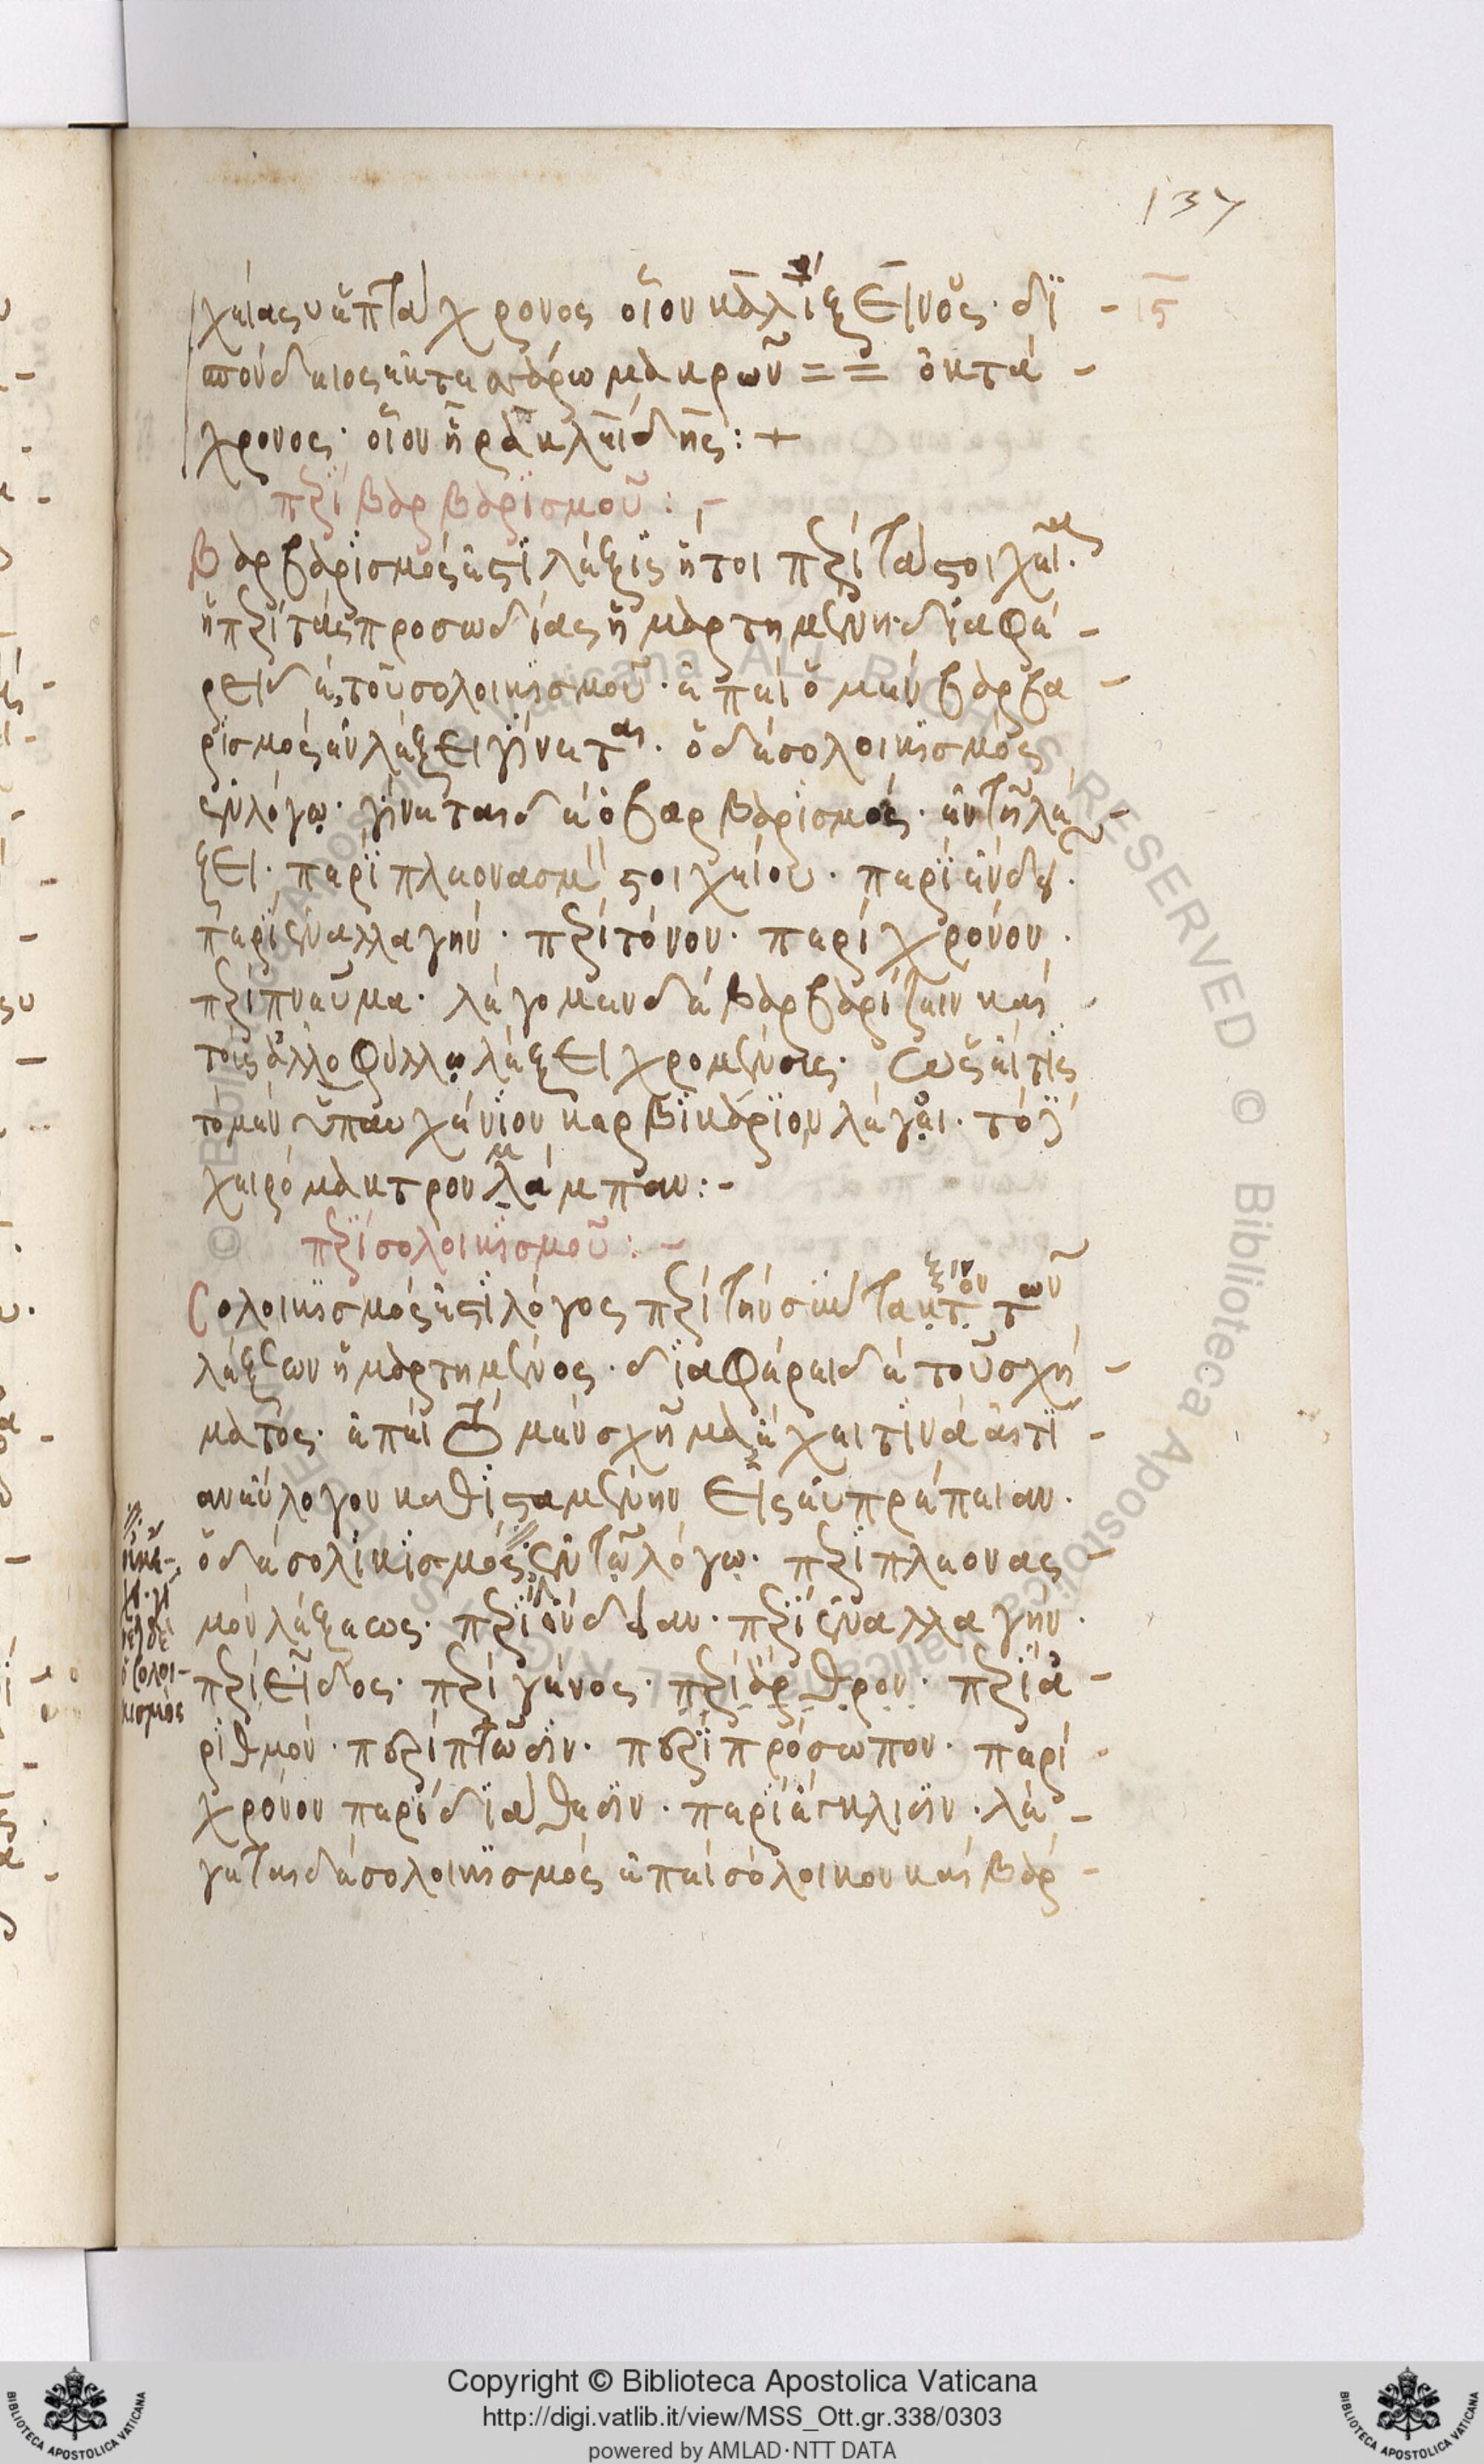 137
χείας υ ἑπτάχρονος οἷον καλλίξεινος· δι –
σπονδειος ἐκ τεσσάρω μακρων = = ὀκτά –
χρονος· οἷον ἡρακλείδης : +
περὶ βαρβαρϊσμοῦ : –
Βαρβαρϊσμός ἐστϊ λέξϊς ἤτοι περὶ τὰ στοιχεῖα
ἢ περὶ τὰς προσωδίας ἡμαρτημένη· διαφέ –
ρει δὲ τοῦ σολοικισμοῦ· ἐπεὶ ὁ μὲν βαρβα –
ρϊσμὸς ἐν λέξει γίνεται· ὁ δὲ σολοικισμὸς
ἐν λόγῳ· γίνεται δὲ ὁ βαρβαρϊσμός· ἐν τῆ λέ –
ξει· περὶ πλεονασμὸν στοιχείου· περὶ ἔνδειαν·
περὶ ἐναλλαγήν· περὶ τόνον· περὶ χρόνον·
περὶ πνεῦμα· λέγομεν δὲ βαρβαρίζειν καὶ
τοῖς ἀλλοφύλλῳ λέξει χρομένοις· ὡς εἴ τϊς
τὸ μὲν ὑπαυχένϊον καρβϊκάριον λέγοι· τὸ δὲ
χειρόμακτρον λάμπαν : –
περὶ σολοικισμοῦ : –
Σολοικισμός ἐστϊ λόγος περὶ τὴν σύνταξιν τῶν
λέξεων ἡμαρτημένος· διαφέρει δὲ τοῦ σχή –
ματος· ἐπεὶ τὸ μὲν σχῆμα ἔχει τϊνὰ αἰτί –
αν εὔλογον καθισταμένην εἰς εὐπρέπειαν·
ὁ δὲ σολικισμός ἐν τῶ λόγῳ· περὶ πλεονας –
μὸν λέξεως· περὶ ἔνδειαν· περὶ ἐναλλαγήν·
περὶ εἶδος· περὶ γένος· περὶ ἄρθρον· περὶ ἀ –
ριθμόν· περὶ πτῶσιν· περὶ πρόσωπον· περὶ
χρόνον περὶ διάθεσιν· περὶ ἔγκλισιν· λέ –
γεται δὲ σολοικισμὸς ἐπεὶ σόλοικον καὶ βαρ –
ὁ σολοι–
κισμὸς
Copyright © Biblioteca Apostolica Vaticana
http://digi.vatlib.it/view/MSS_Ott.gr.338/0303
powered by AMLAD·NTT DATA